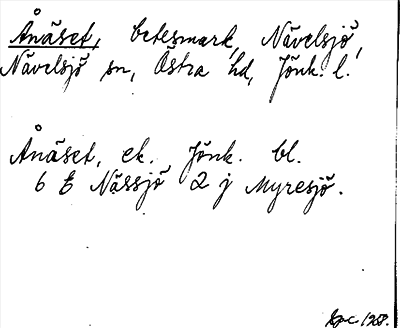 Ånäset, betesmark, Nävelsjö,
Nävelsjö sn, Östra hd, Jönk. l.
Ånäset, ek. Jönk. bl.
6 E Nässjö 2 j Myresjö.
1968.